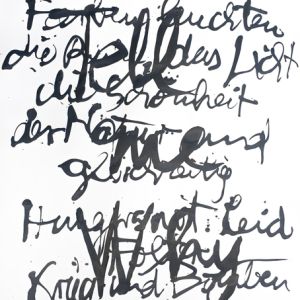 Farben leuchten
die das Licht
die Schönheit
der Natur und
gleichzeitig
Hungersnot Leid
Krieg und Bomben
Tell
me
Why